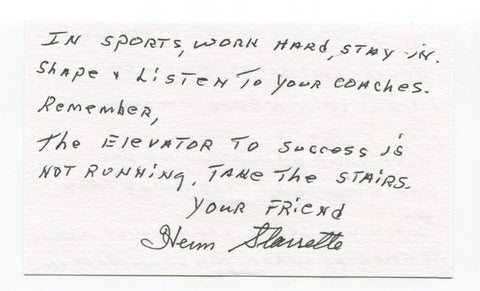 IN SPORTS, WORK HARD, STAY IN.
SHAPE & LISTEN TO YOUR COACHES.
Remember,
The ELEVATOR TO SUCCESS iS
NOT RUNNiNg. TAKE The STAIRS.
YOUR FRiEND
Herm Starrette